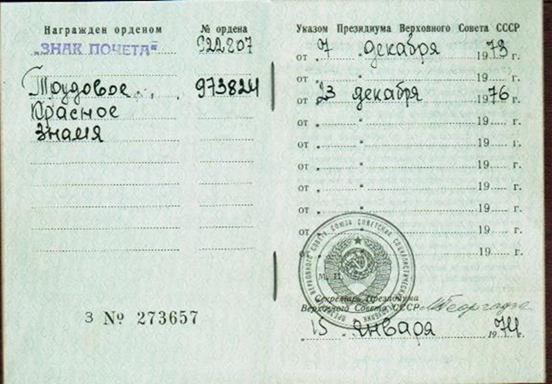 Награжден орденом
№ ордена
„ЗНАК ПОЧЕТА"
922207
Трудовое
973824
Красное
Знамя
З № 273657
Указом Президиума Верховного Совета СССР
от „7 " декабря 1973 г.
от „ " 19 г.
от „23 декабря 1976 г.
от „ " 19 г.
от „ " 19 г.
от „ " 19 г.
от „ " 19 г.
от „ " 19 г.
от „ " 19 г.
от „ " 19 г.
М. П.
Секретарь Президиума
Верховного Совета СССР
15 января 1974 г.